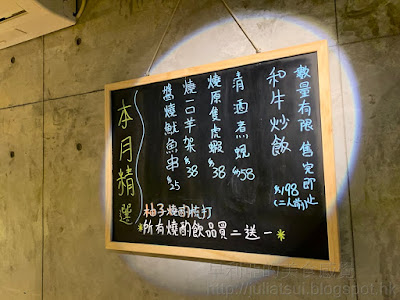 數量有限 售完即止
和牛炒飯 $198
(二人前)
清酒煮蜆 $58
燒原隻虎蝦 $38
燒一口羊架 $38
醬燒魷魚串 $35
本月精選
柚子燒酎梳打
*所有燒酎飲品買二送一*
http://juliatsui.blogspot.hk